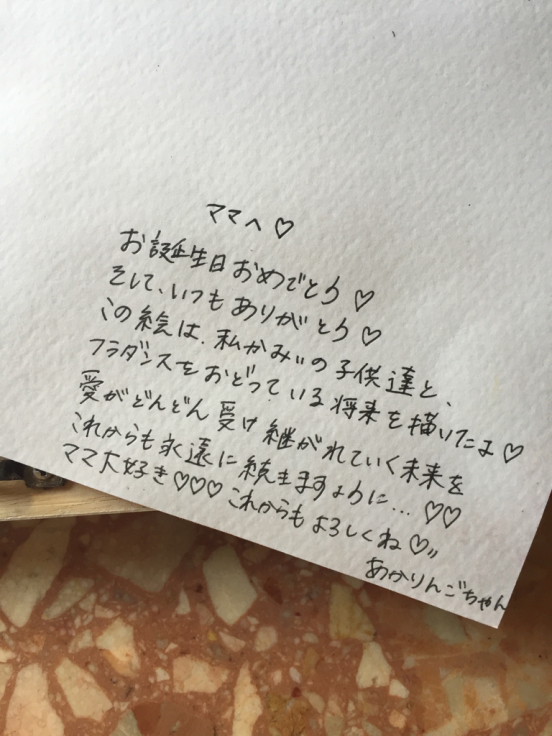 ママへ♡
お誕生日おめでとう♡
そして、いつもありがとう♡
この絵は、私がみいの子供達と、
フラダンスをおどっている将来を描いたよ♡
愛がどんどん受け継がれていく未来を
これからも永遠に続きますように…♡♡
ママ大好き♡♡♡これからもよろしくね♡〃
あかりんごちゃん